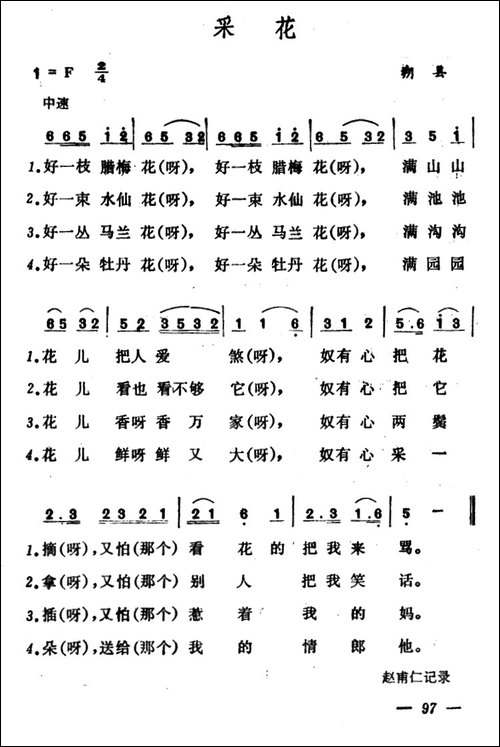 采 花
1 = F 2/4 朔县
中速
6 6 5 1 2 | 6 5 3 2 | 6 6 5 1 2 | 6 5 3 2 | 3 5 1 |
1.好一枝 腊梅 花(呀), 好一枝 腊梅 花(呀), 满 山 山
2.好一束 水仙 花(呀), 好一束 水仙 花(呀), 满 池 池
3.好一丛 马兰 花(呀), 好一丛 马兰 花(呀), 满 沟 沟
4.好一朵 牡丹 花(呀), 好一朵 牡丹 花(呀), 满 园 园
6 5 3 2 | 5 2 3 5 3 2 | 1 1 6 | 3 1 2 | 5 . 6 1 3 |
1.花 儿 把人 爱 煞(呀), 奴有 心 把 花
2.花 儿 看也 看不够 它(呀), 奴有 心 把 它
3.花 儿 香呀 香 万 家(呀), 奴有 心 两 鬓
4.花 儿 鲜呀 鲜 又 大(呀), 奴有 心 采 一
2 . 3 2 3 2 1 | 2 1 6 1 | 2 . 3 1 . 6 | 5 — ‖
1.摘(呀),又怕(那个) 看 花 的 把 我 来 骂。
2.拿(呀),又怕(那个) 别 人 把 我 笑 话。
3.插(呀),又怕(那个) 惹 着 我 的 妈。
4.朵(呀),送给(那个) 我 的 情 郎 他。
赵甫仁记录
— 97 —